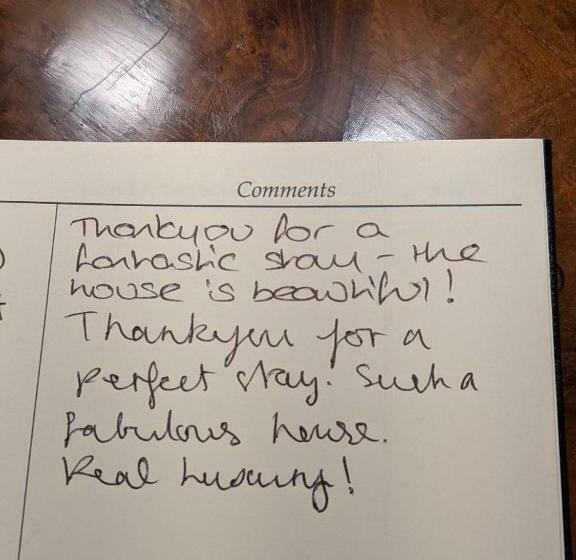 Comments
Thankyou for a
fantastic stay - the
house is beautiful!
Thankyou for a
perfect stay. Such a
fabulous house.
Real luxury!